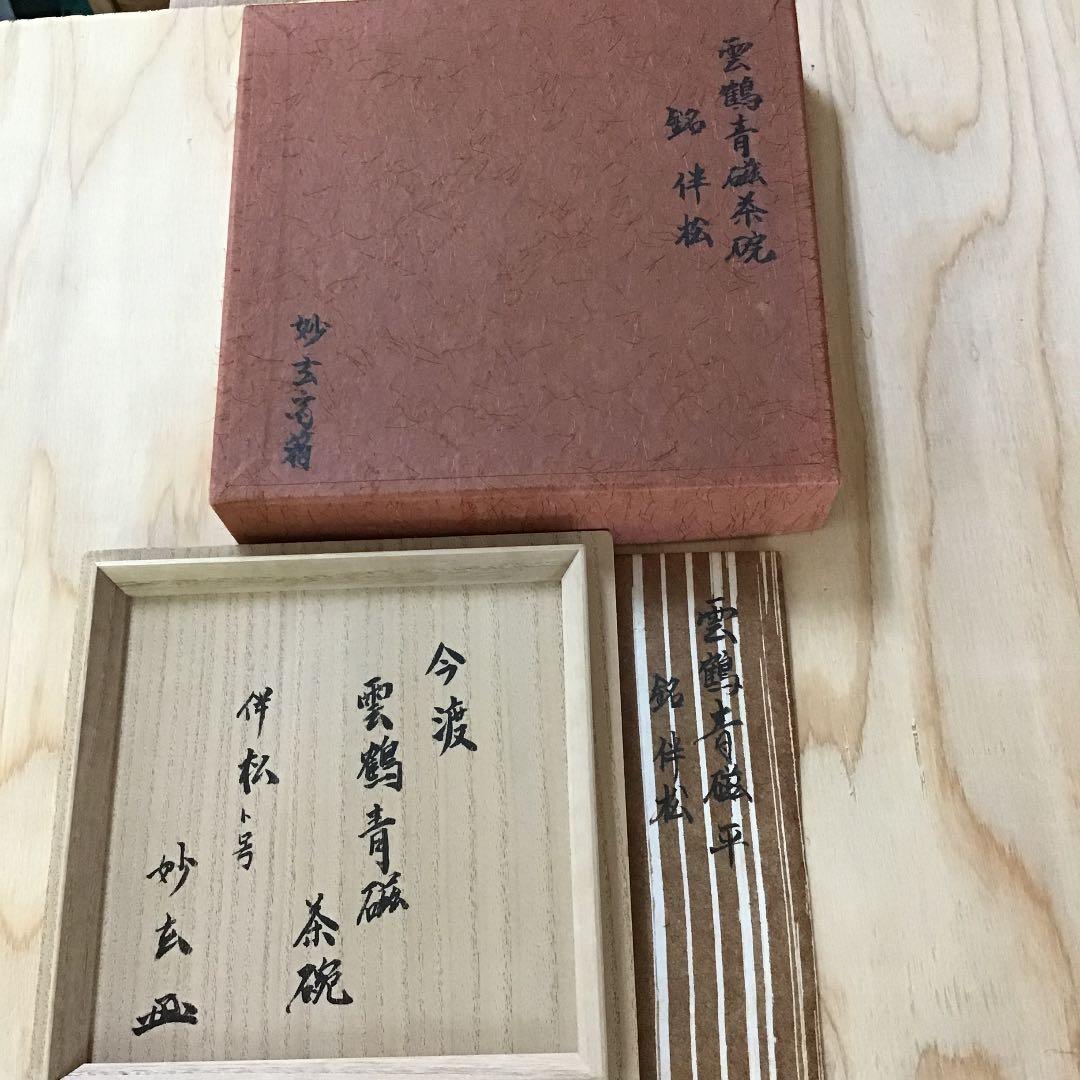 雲鶴青磁茶碗
銘 伴松
妙玄
今渡
雲鶴青磁
茶碗
伴松ト号
妙玄
雲鶴青磁平
銘 伴松